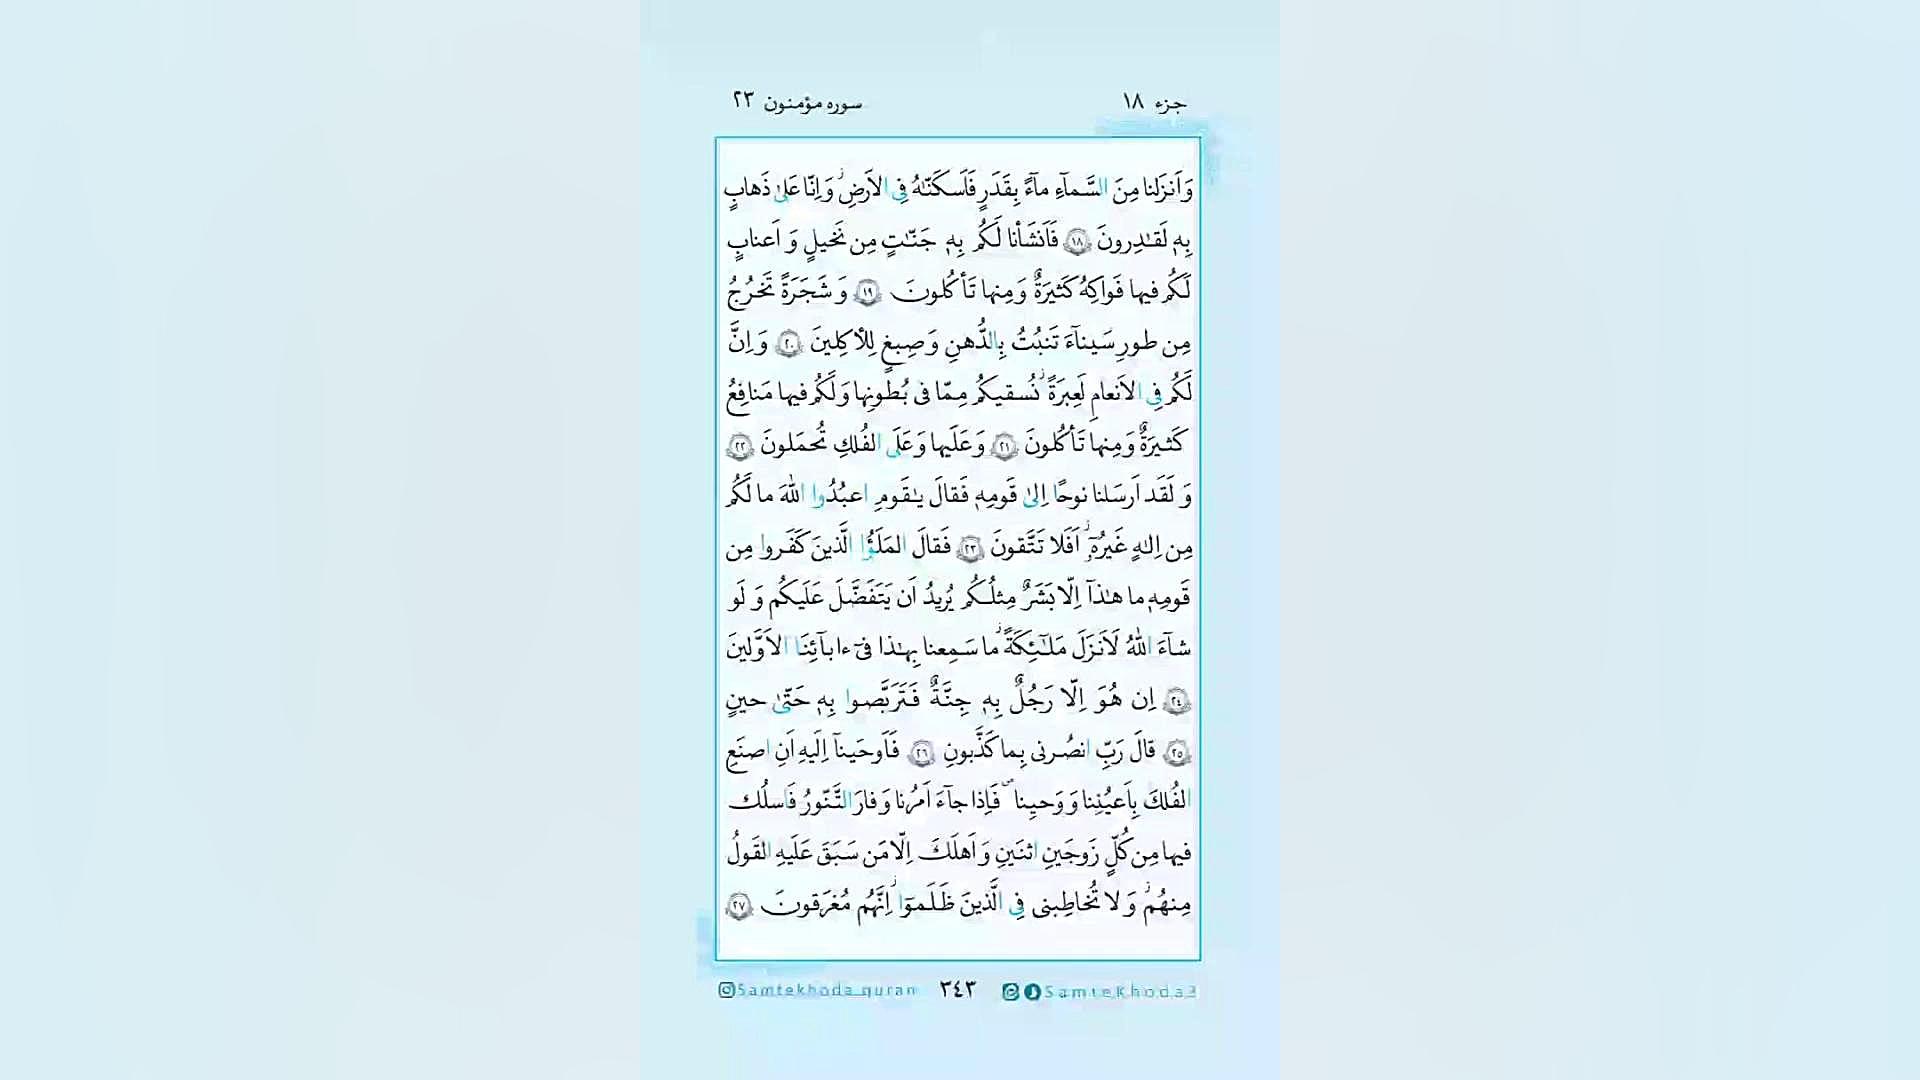 جزء ۱۸
سوره مؤمنون ۲۳
وَ اَنزَلنا مِنَ السَّمآءِ مآءً بِقَدَرٍ فَاَسكَنّٰهُ فِی الاَرضِ ۖ وَ اِنّا عَلىٰ ذَهابٍ
بِهٖ لَقٰدِرونَ ﴿۱۸﴾ فَاَنشَأنا لَكُم بِهٖ جَنّٰتٍ مِن نَخیلٍ وَ اَعنابٍ
لَكُم فیها فَواكِهُ كَثیرَةٌ وَ مِنها تَأكُلونَ ﴿۱۹﴾ وَ شَجَرَةً تَخرُجُ
مِن طورِ سَیناءَ تَنبُتُ بِالدُّهنِ وَ صِبغٍ لِلأكِلینَ ﴿۲۰﴾ وَ اِنَّ
لَكُم فِی الاَنعامِ لَعِبرَةً ۖ نُسقیكُم مِمّا فی بُطونِها وَ لَكُم فیها مَنافِعُ
كَثیرَةٌ وَ مِنها تَأكُلونَ ﴿۲۱﴾ وَ عَلَیها وَ عَلَى الفُلكِ تُحمَلونَ ﴿۲۲﴾
وَ لَقَد اَرسَلنا نوحًا اِلىٰ قَومِهٖ فَقالَ یٰقَومِ اعبُدُوا اللّٰهَ ما لَكُم
مِن اِلٰهٍ غَیرُهٗٓ ۖ اَفَلا تَتَّقونَ ﴿۲۳﴾ فَقالَ المَلَؤُا الَّذینَ كَفَروا مِن
قَومِهٖ ما هٰذآ اِلّا بَشَرٌ مِثلُكُم یُریدُ اَن یَتَفَضَّلَ عَلَیكُم وَ لَو
شآءَ اللّٰهُ لَاَنزَلَ مَلٰٓئِكَةً ما سَمِعنا بِهٰذا فیٓ ءابآئِنَا الاَوَّلینَ
﴿۲٤﴾ اِن هُوَ اِلّا رَجُلٌ بِهٖ جِنَّةٌ فَتَرَبَّصوا بِهٖ حَتّىٰ حینٍ
﴿۲۵﴾ قالَ رَبِّ انصُرنی بِما كَذَّبونِ ﴿۲٦﴾ فَاَوحَینآ اِلَیهِ اَنِ اصنَعِ
الفُلكَ بِاَعیُنِنا وَ وَحیِنا ۙ فَاِذا جآءَ اَمرُنا وَ فارَ التَّنّورُ فَاسلُك
فیها مِن كُلٍّ زَوجَینِ اثنَینِ وَ اَهلَكَ اِلّا مَن سَبَقَ عَلَیهِ القَولُ
مِنهُم ۖ وَ لا تُخاطِبنی فِی الَّذینَ ظَلَموٓا ۖ اِنَّهُم مُغرَقونَ ﴿۲۷﴾
Samtekhoda_quran ۳٤۳ Samtekhoda3